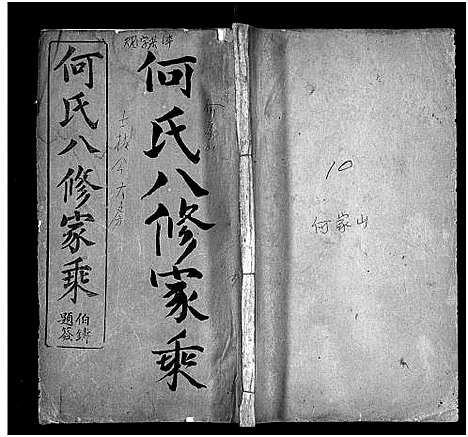 何氏八修家乘
伯鑄
題簽
何氏八修家乘
10
何家山